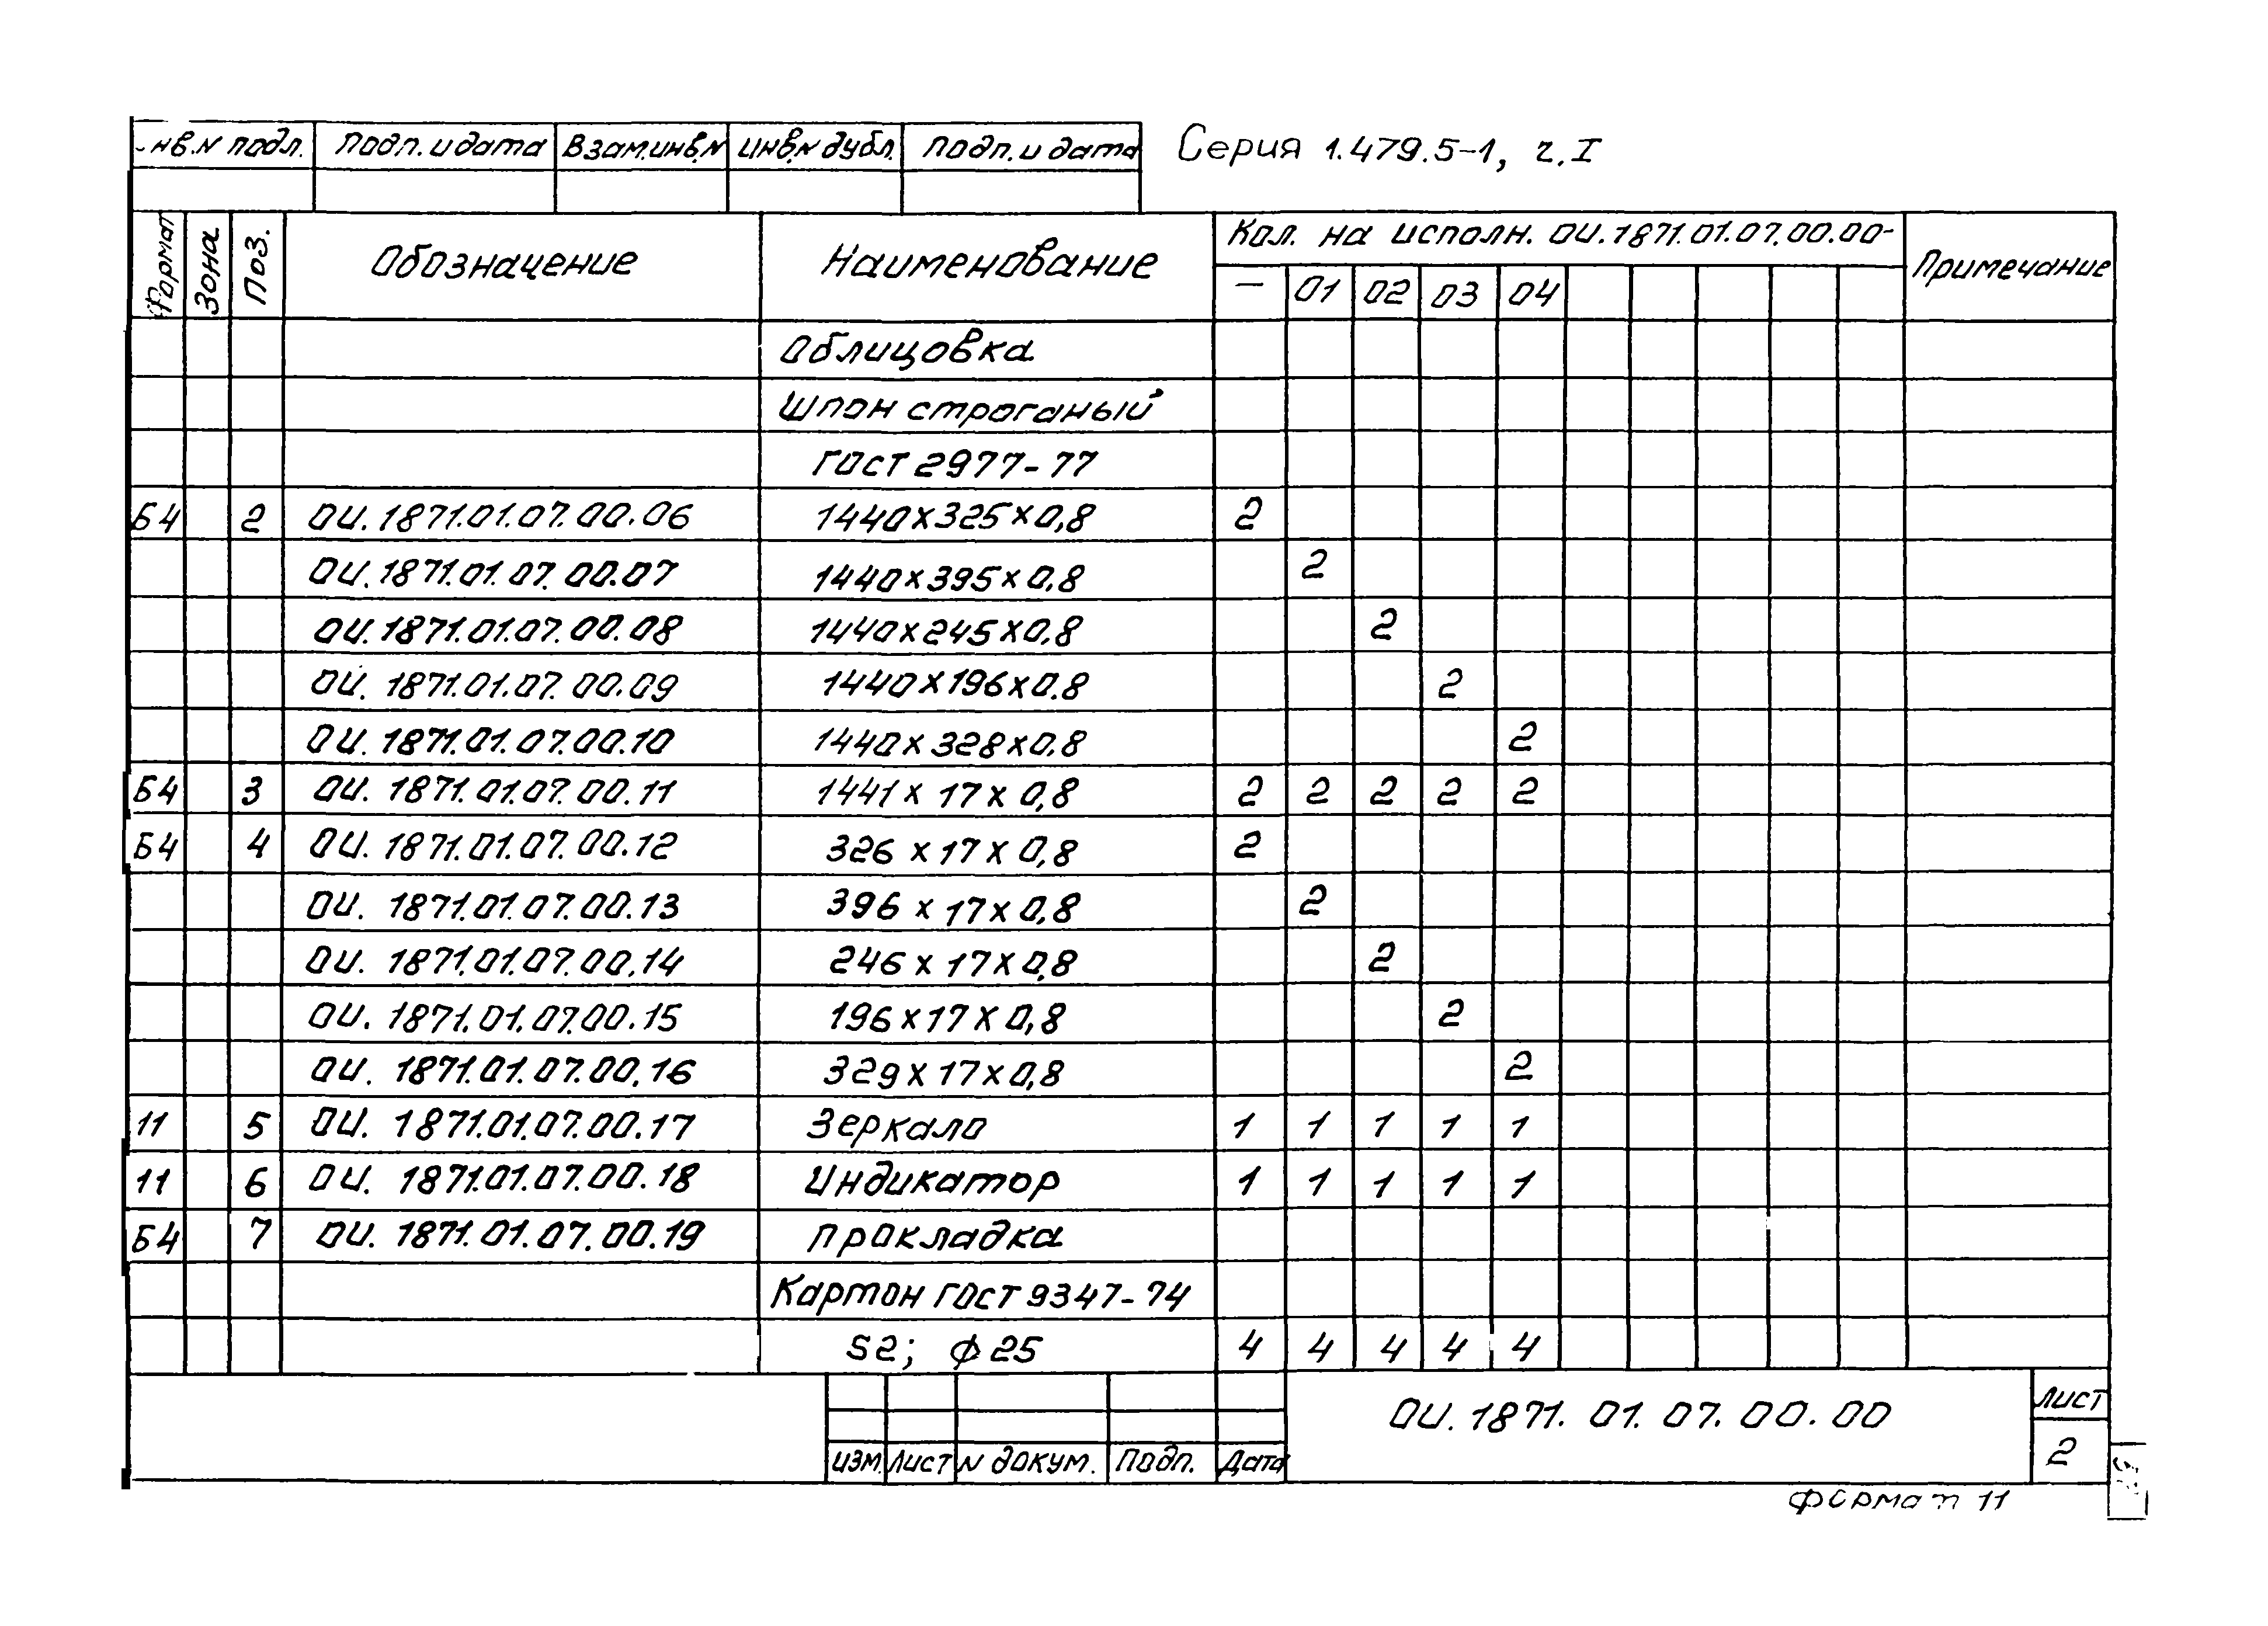 нв.N подл. Подп. и дата Взам.инв.N Инв.N дубл. Подп. и дата Серия 1.479.5-1, ч.I
Формат Зона Поз. Обозначение Наименование Кол. на исполн. ОИ.1871.01.07.00.00- Примечание
— 01 02 03 04
Облицовка
Шпон строганый
ГОСТ 2977-77
Б4 2 ОИ.1871.01.07.00.06 1440х325х0,8 2
ОИ.1871.01.07.00.07 1440х395х0,8 2
ОИ.1871.01.07.00.08 1440х245х0,8 2
ОИ. 1871.01.07.00.09 1440х196х0.8 2
ОИ. 1871.01.07.00.10 1440х328х0.8 2
Б4 3 ОИ. 1871.01.07.00.11 1441х 17х 0,8 2 2 2 2 2
Б4 4 ОИ. 1871.01.07.00.12 326 х17х 0,8 2
ОИ. 1871.01.07.00.13 396 х 17х 0,8 2
ОИ. 1871.01.07.00.14 246 х 17х 0,8 2
ОИ. 1871.01.07.00.15 196х17х0,8 2
ОИ. 1871.01.07.00.16 329х17х0,8 2
11 5 ОИ. 1871.01.07.00.17 Зеркало 1 1 1 1 1
11 6 ОИ. 1871.01.07.00.18 Индикатор 1 1 1 1 1
Б4 7 ОИ. 1871.01.07.00.19 Прокладка
Картон ГОСТ 9347-74
S2; ф 25 4 4 4 4 4
ОИ.1871. 01. 07. 00. 00 Лист
Изм. Лист N докум. Подп. Дата 2
Формат 11